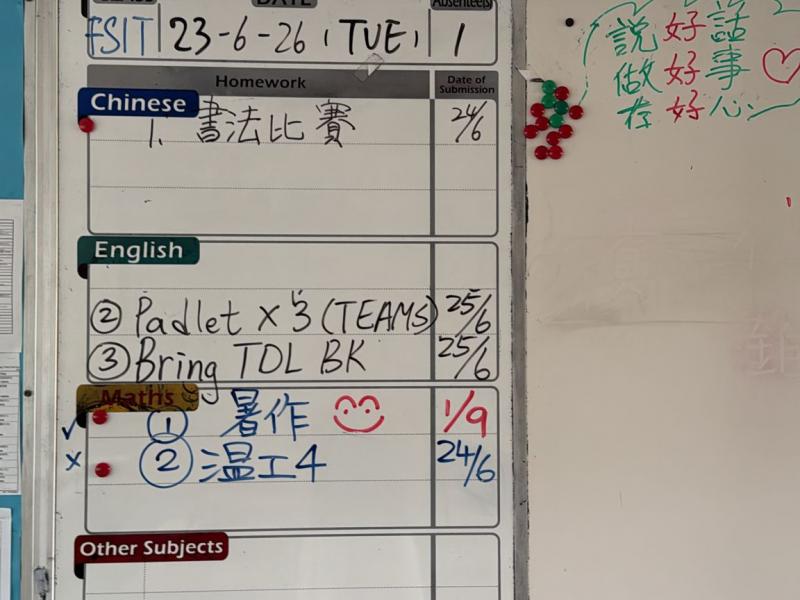 DATE
Absentees
FSIT 23-6-26 (TUE) 1
Homework
Date of Submission
Chinese
1. 書法比賽 24/6
English
② Padlet x 3 (TEAMS) 25/6
③ Bring TDL BK 25/6
Maths
✓ ① 暑作 1/9
x ② 温工4 24/6
Other Subjects
說好話
做好事
存好心